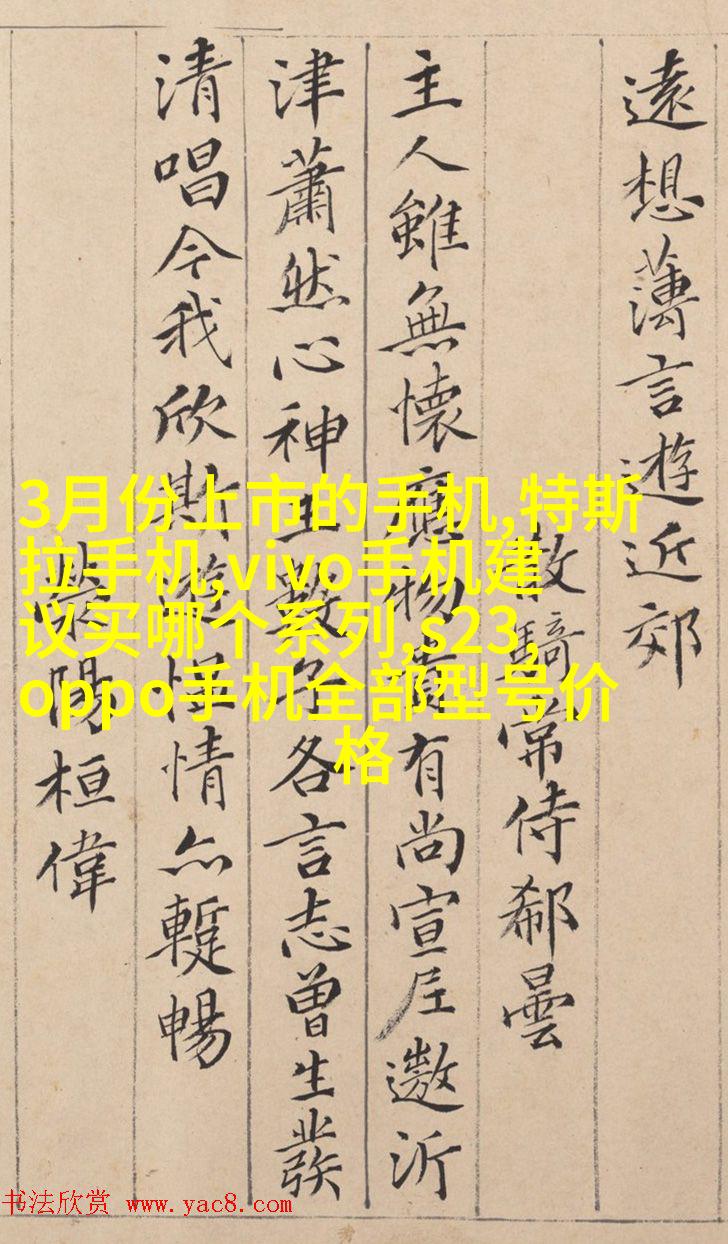 遠想薄言遊近郊
散騎常侍郗曇
主人雖無懷應物貴有尚宣尼遨沂
津蕭然心神王數子各言志曾生發
清唱今我欣斯遊慍情亦蹔暢
榮陽桓偉
3月份上市的手机,特斯
拉手机,vivo手机建
议买哪个系列,s23,
oppo手机全部型号价
格
书法欣赏 www.yac8.com